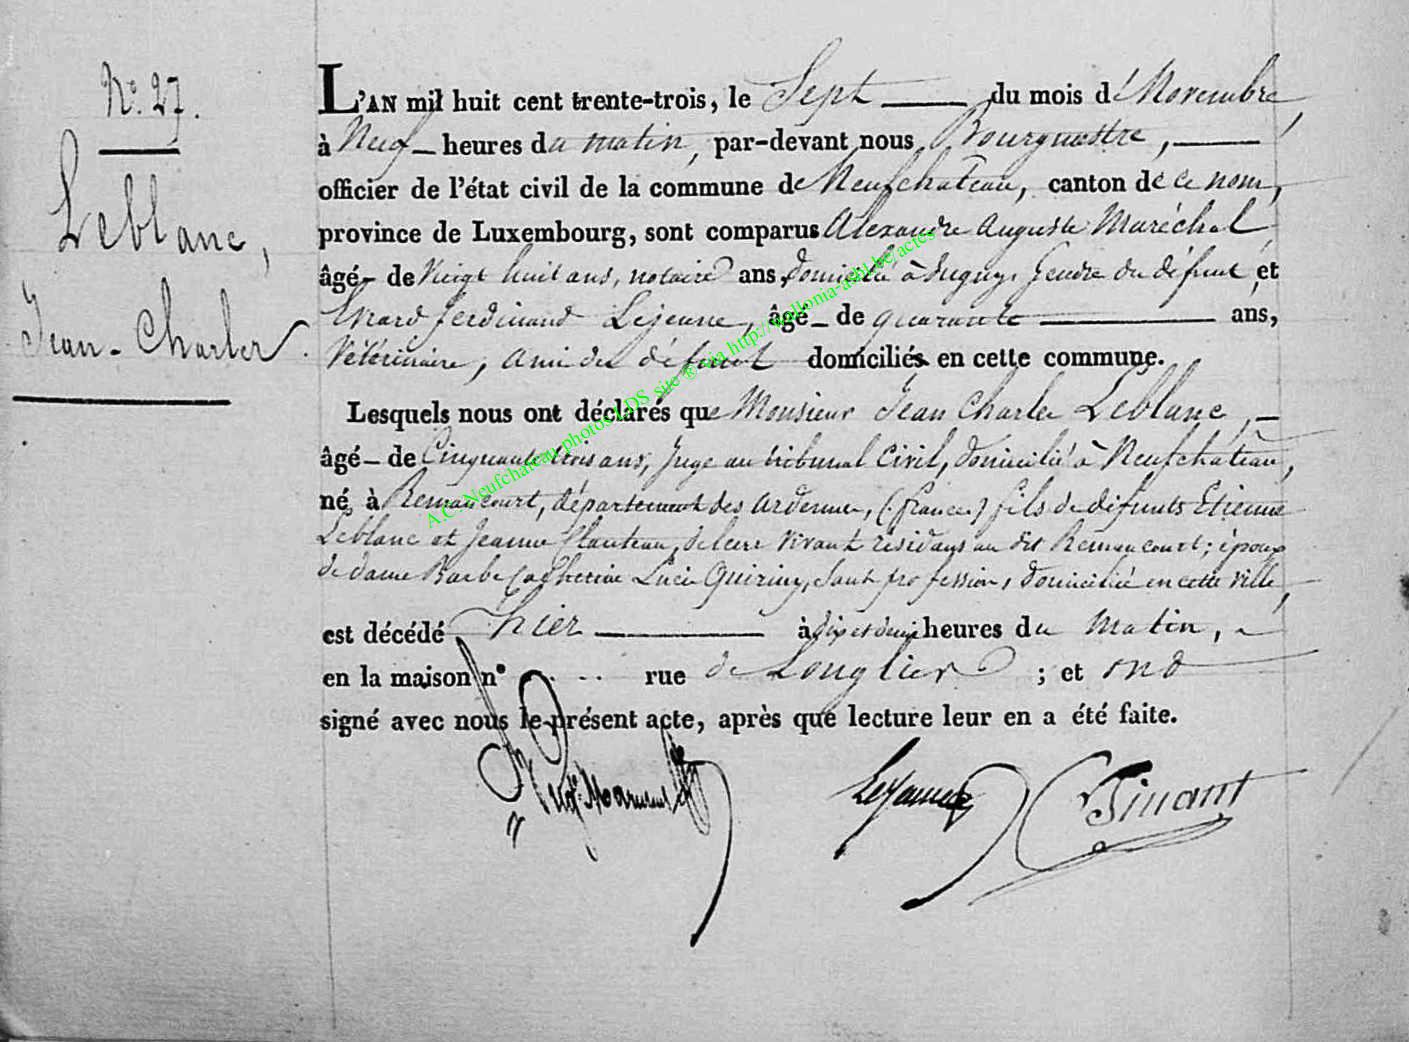 N.° 27.
Leblanc,
Jean-Charles.
L'AN mil huit cent trente-trois, le Sept du mois d'Novembre,
à Neuf heures du matin, par-devant nous Bourgmestre,
officier de l'état civil de la commune de Neufchateau, canton de ce nom,
province de Luxembourg, sont comparus Alexandre Auguste Maréchal
âgé de Vingt huit ans, notaire ans, domicilié à Sugny, Gendre du défunt, et
Ferdinand Lejeune, âgé de quarante ans,
Vétérinaire, ami du défunt domiciliés en cette commune.
Lesquels nous ont déclarés que Monsieur Jean Charles Leblanc,
âgé de Cinquante trois ans, Juge au tribunal Civil, domicilié à Neufchateau,
né à Remaucourt, département des Ardennes, (france) fils de défunts Etienne
Leblanc et Jeanne de leur vivant résidans au dit Remaucourt; époux
de dame Barbe Catherine Lucie Quiriny, sans profession, domiciliée en cette ville,
est décédé hier à dix et demi heures du matin,
en la maison n° .. .. rue de Longlier ; et ont
signé avec nous le présent acte, après que lecture leur en a été faite.
Lejeune
A.C. Neufchateau photos LDS site ® via http://wallonia-asbl.be/actes